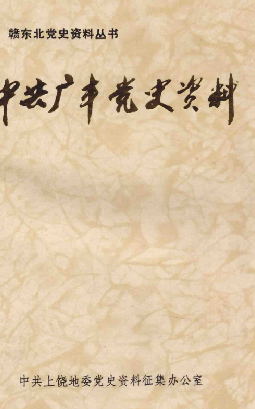 赣东北党史资料丛书
中共广丰党史资料
中共上饶地委党史资料征集办公室